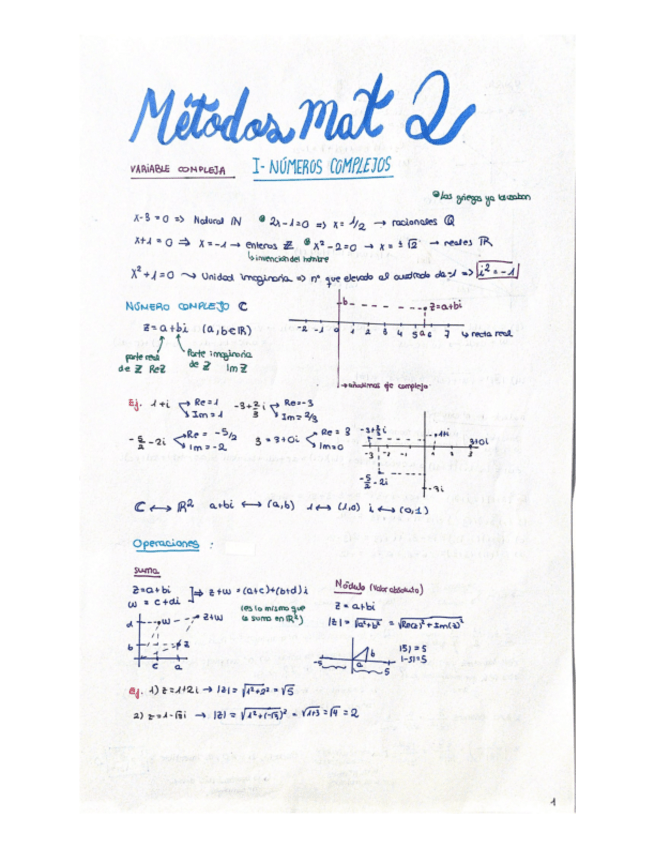 Métodos Mat 2
VARIABLE COMPLEJA I- NÚMEROS COMPLEJOS
los griegos ya utilizaban
x-3=0 => Natural ℕ 2x-1=0 => x= 1/2 → racionales ℚ
x+1=0 => x=-1 → enteros ℤ x²-2=0 → x=±√2 → reales ℝ
↳ invención del hombre
x²+1=0 → Unidad imaginaria => nº que elevado al cuadrado da -1 => i²=-1
NÚMERO COMPLEJO ℂ
z=a+bi (a,b∈ℝ)
parte real de z Re z
Parte imaginaria de z Im z
b z=a+bi
-2 -1 0 1 2 3 4 5 a 6 7 ↳ recta real
→ añadimos eje complejo
Ej. 1+i Re=1 Im=1 -3+2/3 i Re=-3 Im=2/3
-5/2-2i Re=-5/2 Im=-2 3=3+0i Re=3 Im=0
-3+2/3 i 1+i 3+0i
-3 -2 -1 1 2 3
-5/2-2i
ℂ ↔ ℝ² a+bi ↔ (a,b) 1 ↔ (1,0) i ↔ (0,1)
Operaciones :
suma
z=a+bi
w=c+di => z+w=(a+c)+(b+d)i
(es lo mismo que la suma en ℝ²)
d w z+w
b z
c a
Módulo (valor absoluto)
z=a+bi
|z|=√a²+b² = √Re(z)²+Im(z)²
-5 a b 5
|5|=5
|-5|=5
Ej. 1) z=1+2i → |z|=√1²+2²=√5
2) z=1-√3i → |z|=√1²+(-√3)²=√1+3=√4=2
1